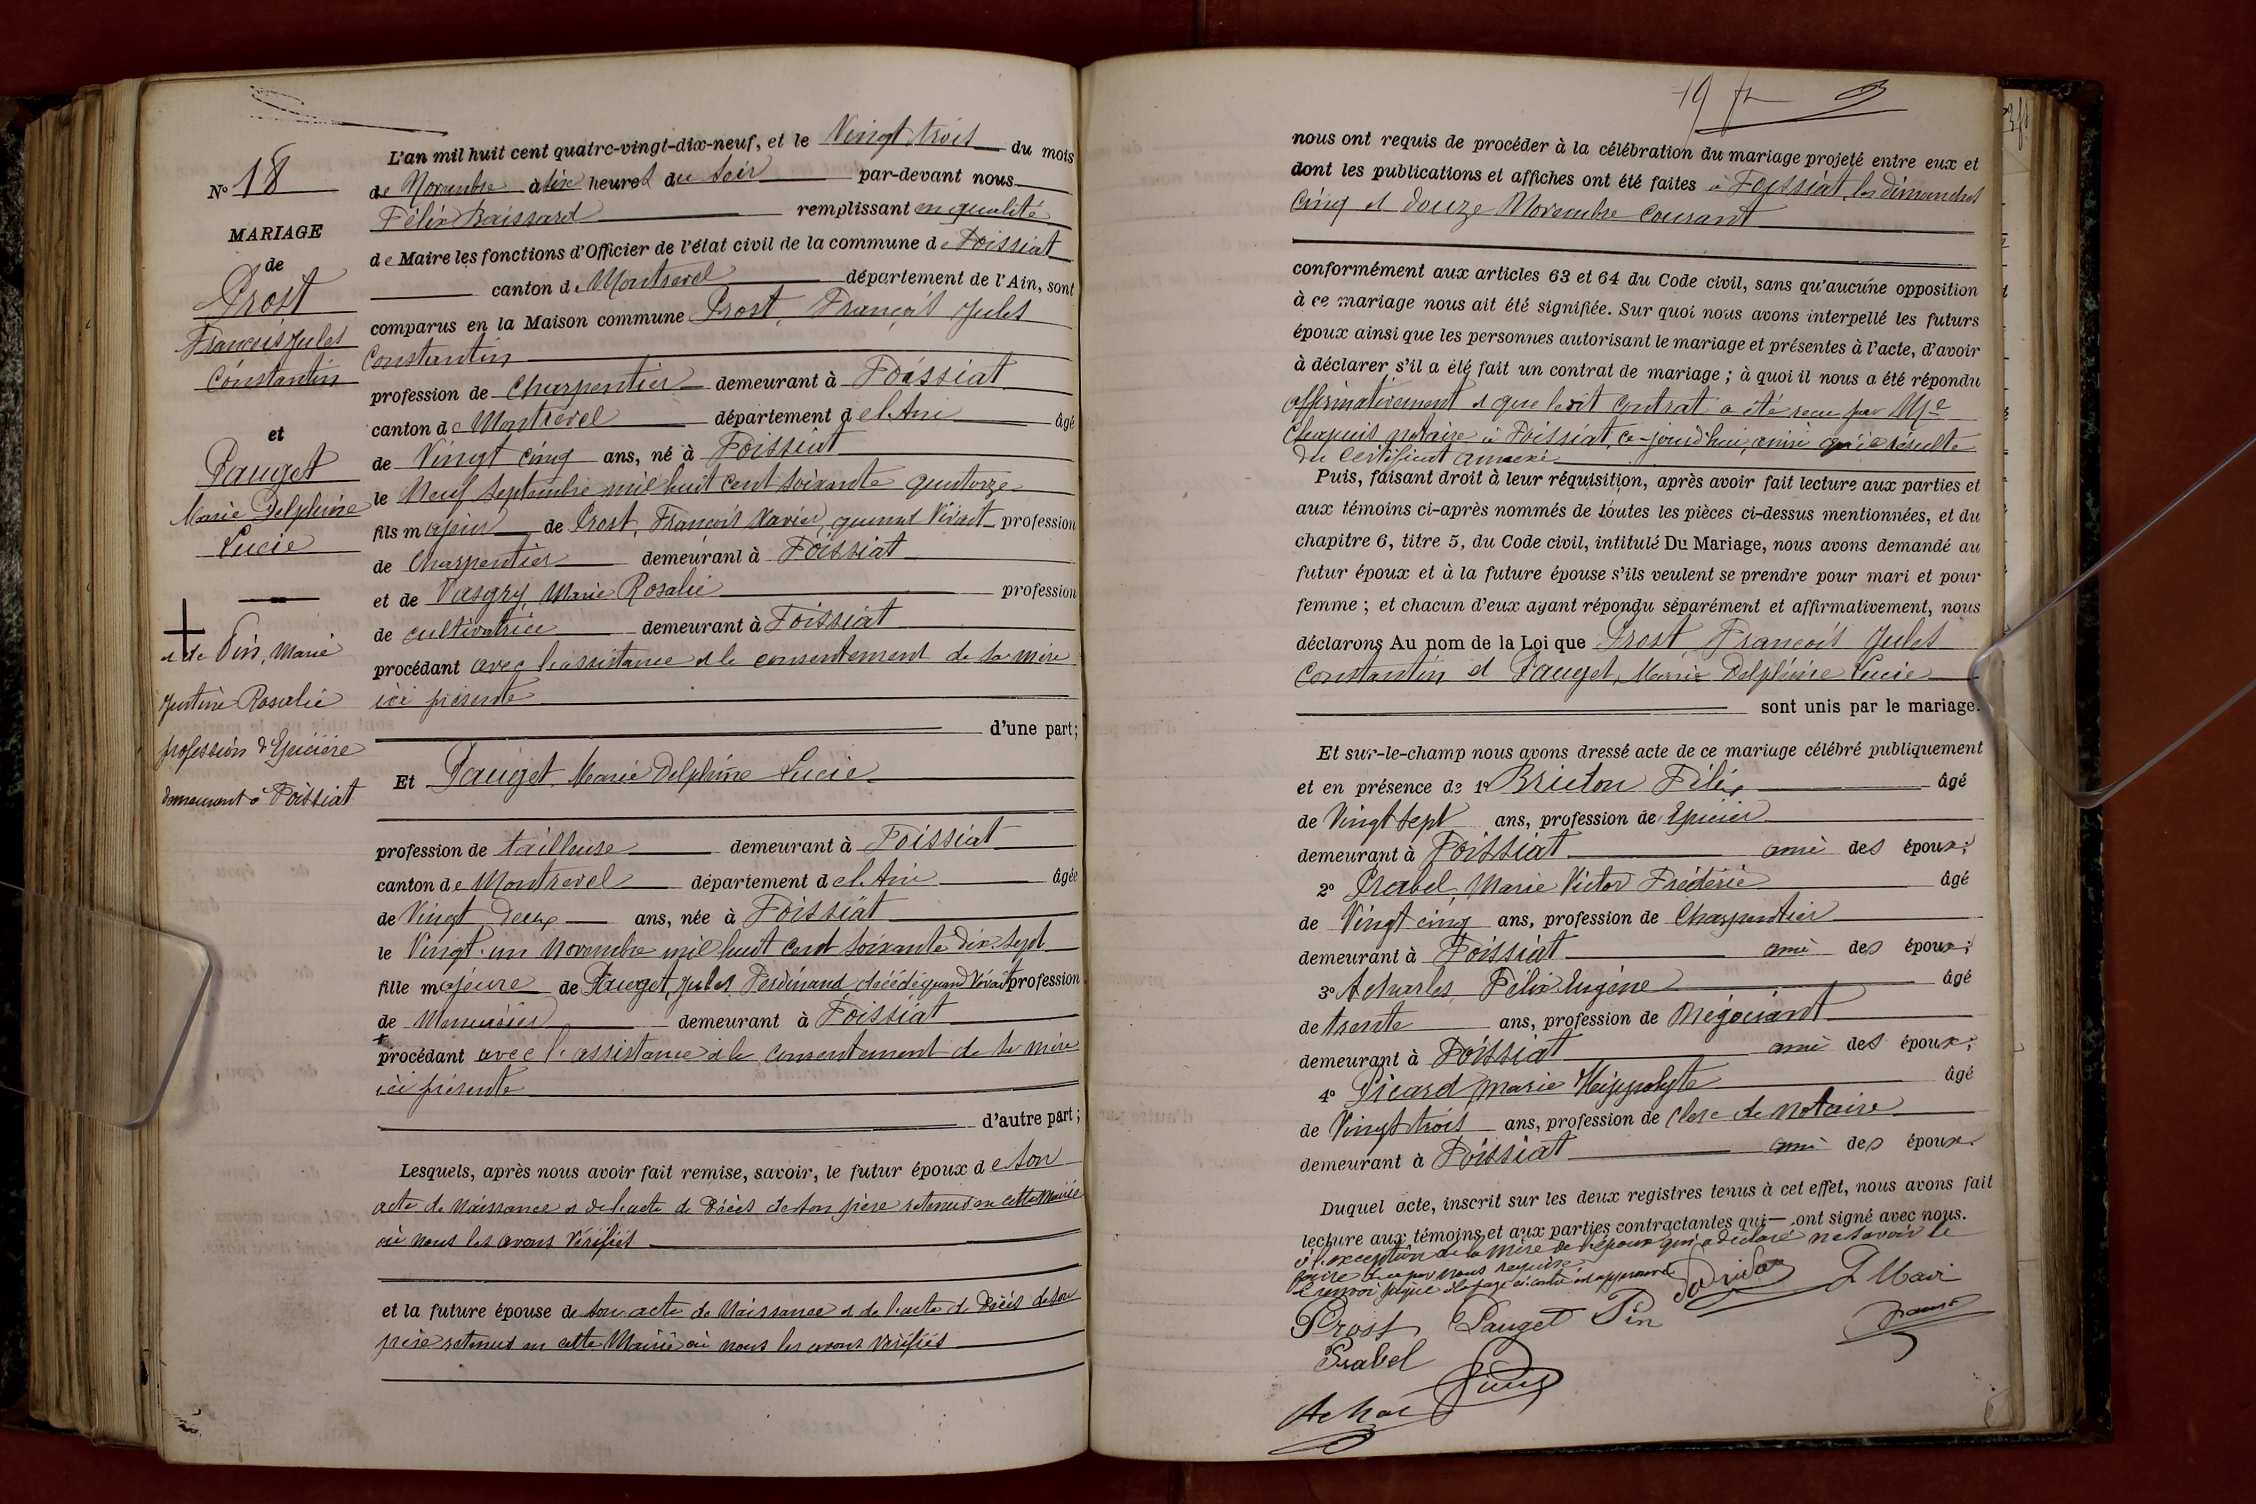 N° 18
MARIAGE
de
Prost
François Jules
Constantin
et
Pauget
Marie Delphine
Lucie
et de Pin, Marie
Justine Rosalie
profession d'Epicière
demeurant à Foissiat
L'an mil huit cent quatre-vingt-dix-neuf, et le Vingt trois du mois
de Novembre à six heures du soir par-devant nous
Félix remplissant en qualité
de Maire les fonctions d'Officier de l'état civil de la commune de Foissiat
canton de Montrevel département de l'Ain, sont
comparus en la Maison commune Prost, François Jules
Constantin
profession de Charpentier demeurant à Foissiat
canton de Montrevel département de l'Ain âgé
de Vingt cinq ans, né à Foissiat
le Neuf Septembre mil huit cent soixante quatorze
fils majeur de Prost, François Xavier, quand Vivait profession
de Charpentier demeurant à Foissiat
et de Marie Rosalie profession
de cultivatrice demeurant à Foissiat
procédant avec l'assistance et le consentement de sa mère
ici présente
d'une part;
Et Pauget Marie Delphine Lucie
profession de tailleuse demeurant à Foissiat
canton de Montrevel département de l'Ain âgée
de Vingt Deux ans, née à Foissiat
le Vingt-un Novembre mil huit cent soixante Dix Sept
fille majeure de Pauget, Jules Ferdinand décédé quand Vivait profession
de Menuisier demeurant à Foissiat
+
procédant avec l'assistance et le consentement de sa mère
ici présente
d'autre part;
Lesquels, après nous avoir fait remise, savoir, le futur époux de son
acte de Naissance et de l'acte de Décès de son père retenus en cette Mairie
où nous les avons Vérifiés
et la future épouse de son acte de Naissance et de l'acte de Décès de son
père retenus en cette Mairie où nous les avons Vérifiés
19
nous ont requis de procéder à la célébration du mariage projeté entre eux et
dont les publications et affiches ont été faites à Foissiat, les dimanches
Cinq et Douze Novembre courant
conformément aux articles 63 et 64 du Code civil, sans qu'aucune opposition
à ce mariage nous ait été signifiée. Sur quoi nous avons interpellé les futurs
époux ainsi que les personnes autorisant le mariage et présentes à l'acte, d'avoir
à déclarer s'il a été fait un contrat de mariage; à quoi il nous a été répondu
affirmativement et que ledit contrat a été reçu par Me
Chapuis notaire à Foissiat, ce-jourd'hui, ainsi qu'il résulte
du certificat annexé
Puis, faisant droit à leur réquisition, après avoir fait lecture aux parties et
aux témoins ci-après nommés de toutes les pièces ci-dessus mentionnées, et du
chapitre 6, titre 5, du Code civil, intitulé Du Mariage, nous avons demandé au
futur époux et à la future épouse s'ils veulent se prendre pour mari et pour
femme; et chacun d'eux ayant répondu séparément et affirmativement, nous
déclarons Au nom de la Loi que Prost François Jules
Constantin et Pauget, Marie Delphine Lucie
sont unis par le mariage.
Et sur-le-champ nous avons dressé acte de ce mariage célébré publiquement
et en présence de 1° Félix âgé
de Vingt sept ans, profession de Epicier
demeurant à Foissiat ami des époux;
2° Prabel, Marie Victor Frédéric âgé
de Vingt cinq ans, profession de Charpentier
demeurant à Foissiat ami des époux;
3° Félix Eugène âgé
de trente ans, profession de Négociant
demeurant à Foissiat ami des époux;
4° Picard, Marie Hippolyte âgé
de Vingt trois ans, profession de clerc de notaire
demeurant à Foissiat ami des époux.
Duquel acte, inscrit sur les deux registres tenus à cet effet, nous avons fait
lecture aux témoins et aux parties contractantes qui ont signé avec nous.
à l'exception de la Mère de l'époux qui a déclaré ne savoir le
faire de ce par nous requise
Le renvoi figuré à la page ci-contre est approuvé
Prost Pauget Pin
Prabel